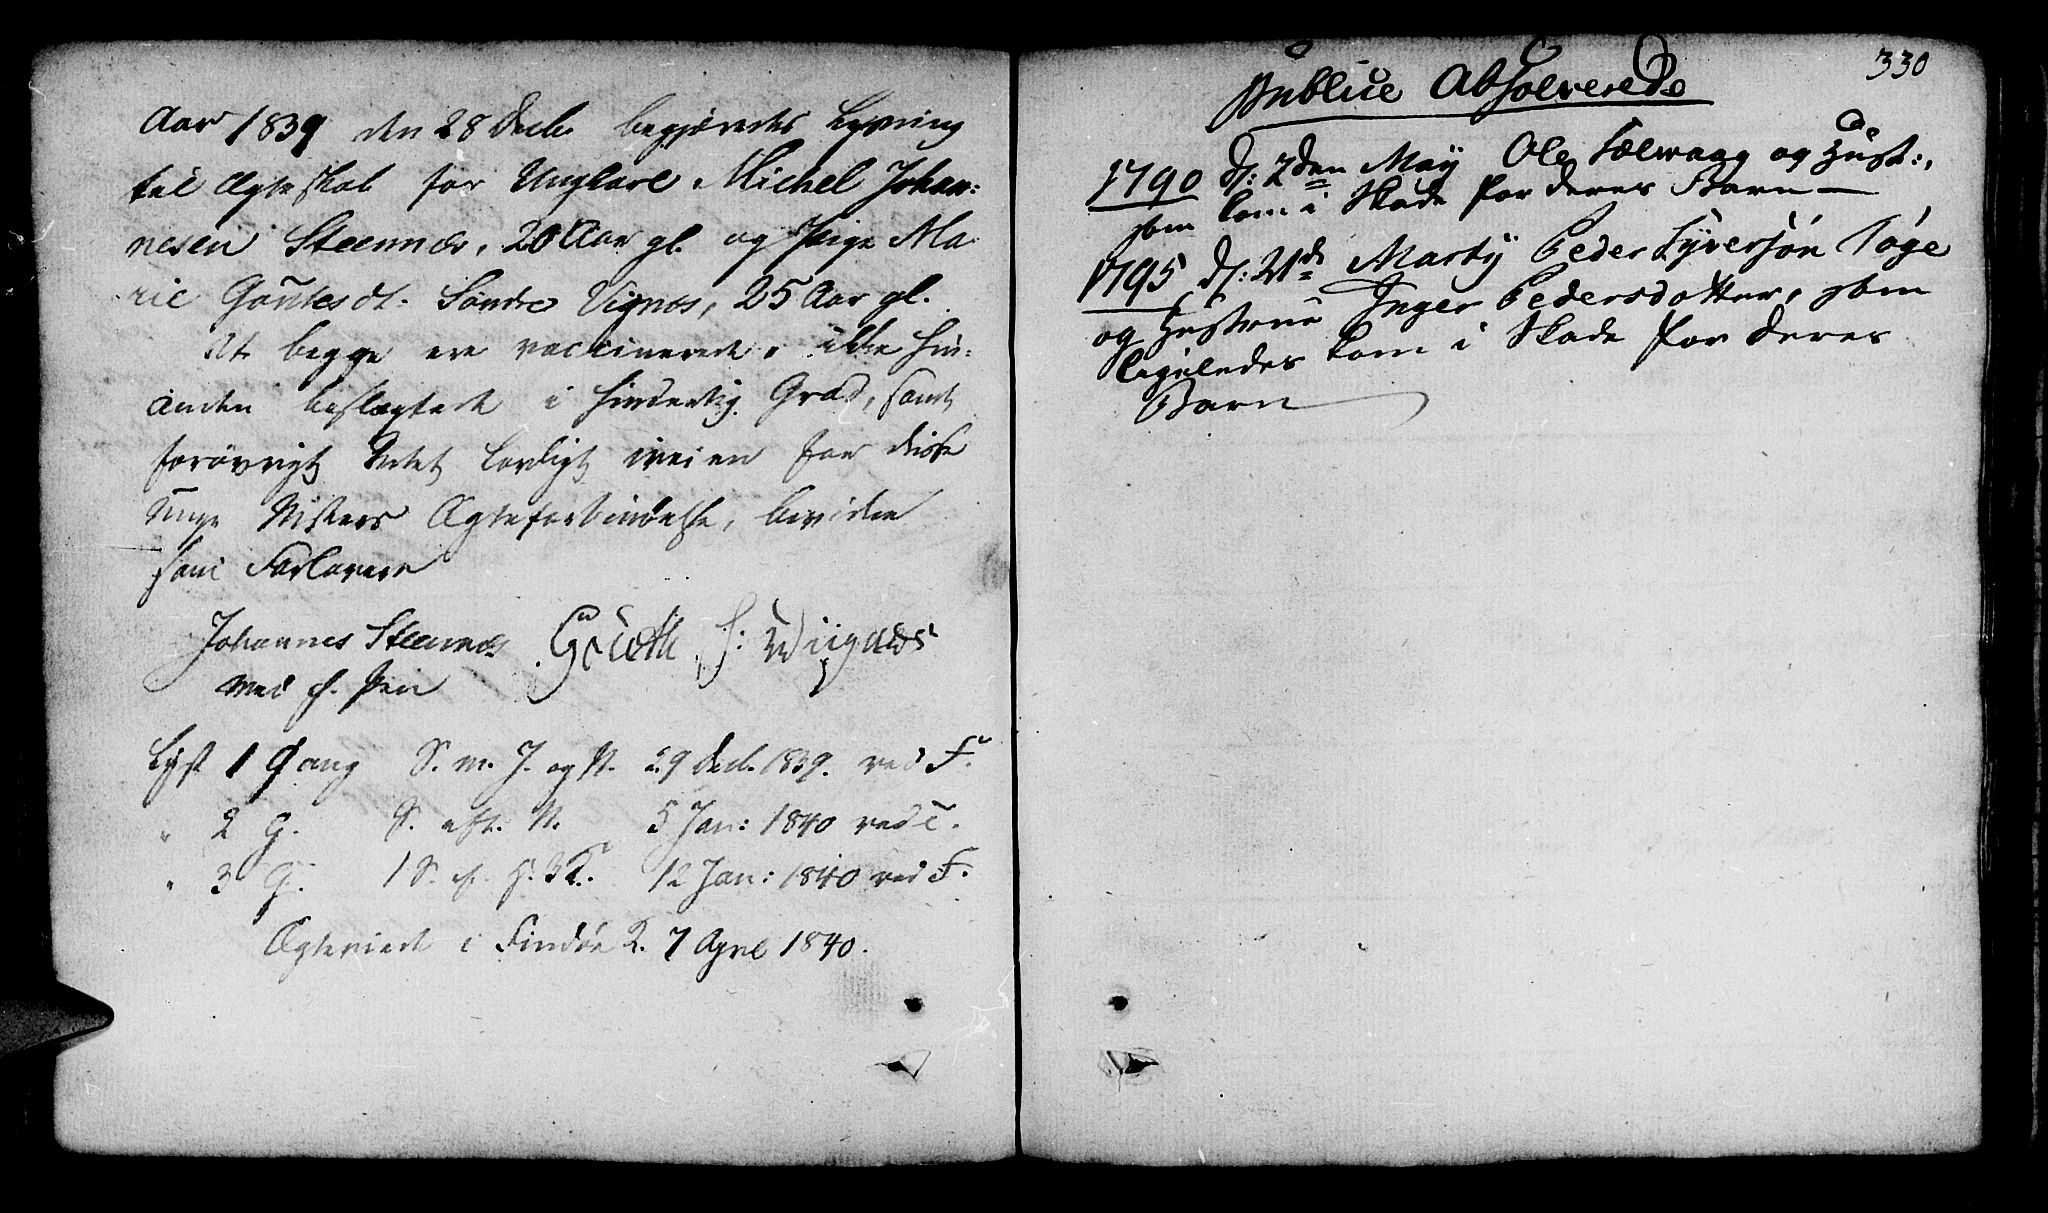 Aar 1839 den 28 Decb. begjæredes Lysning
til Ægteskab for Ungkarl Michel Johan=
nesen Steennæs, 20 Aar gl. og Pige Ma
rie Gautesdt. Søndre Vignæs, 25 Aar gl.
At begge ere vaccinerede, ikke hin=
anden beslægtede i hinderlig Grad, samt
forøvrigt Intet lovligt iveien for disse
Unge Ægteforbindelse, bevidne
som Forlovere
Johannes Steennæs Gouth S: Wiignæs
med f. Pen
Lyst 1 Gang S. m. J. og N. 29 Decb. 1839. ved F.
" 2 G. S. eft. N. 5 Jan: 1840 ved F.
" 3 G. 1 S. e. H. 3 K. 12 Jan: 1840 ved F.
Ægteviede i Findøe K. 7 April 1840.
330
Publice Absolverede
1790 d: 2den May Ole Tælwaag og Hust:,
som kom i Skade for deres Barn —
1795 d: 21de Marty Peder Syversøn Tøge
og Hustrue Inger Pedersdatter, som
ligeledes kom i Skade for deres
Barn